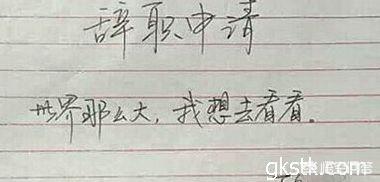 辞职申请
世界那么大，我想去看看。
gksth.com